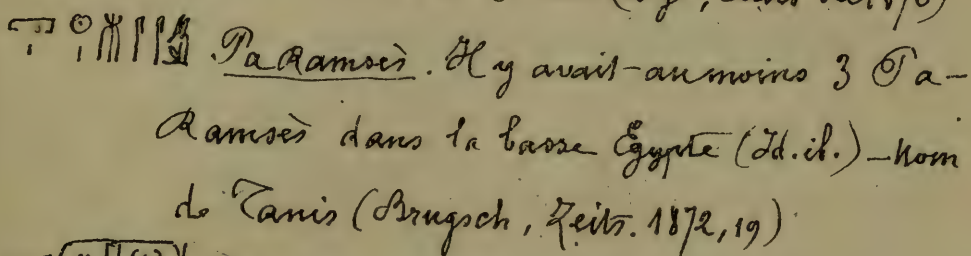 𓉐𓏤𓇳𓏤𓄟𓋴𓋴 Pa Ramsès. Il y avait au moins 3 Pa-
Ramsès dans la basse Égypte (Id. ib.) – Nom
de Tanis (Brugsch, Zeits. 1872, 19)